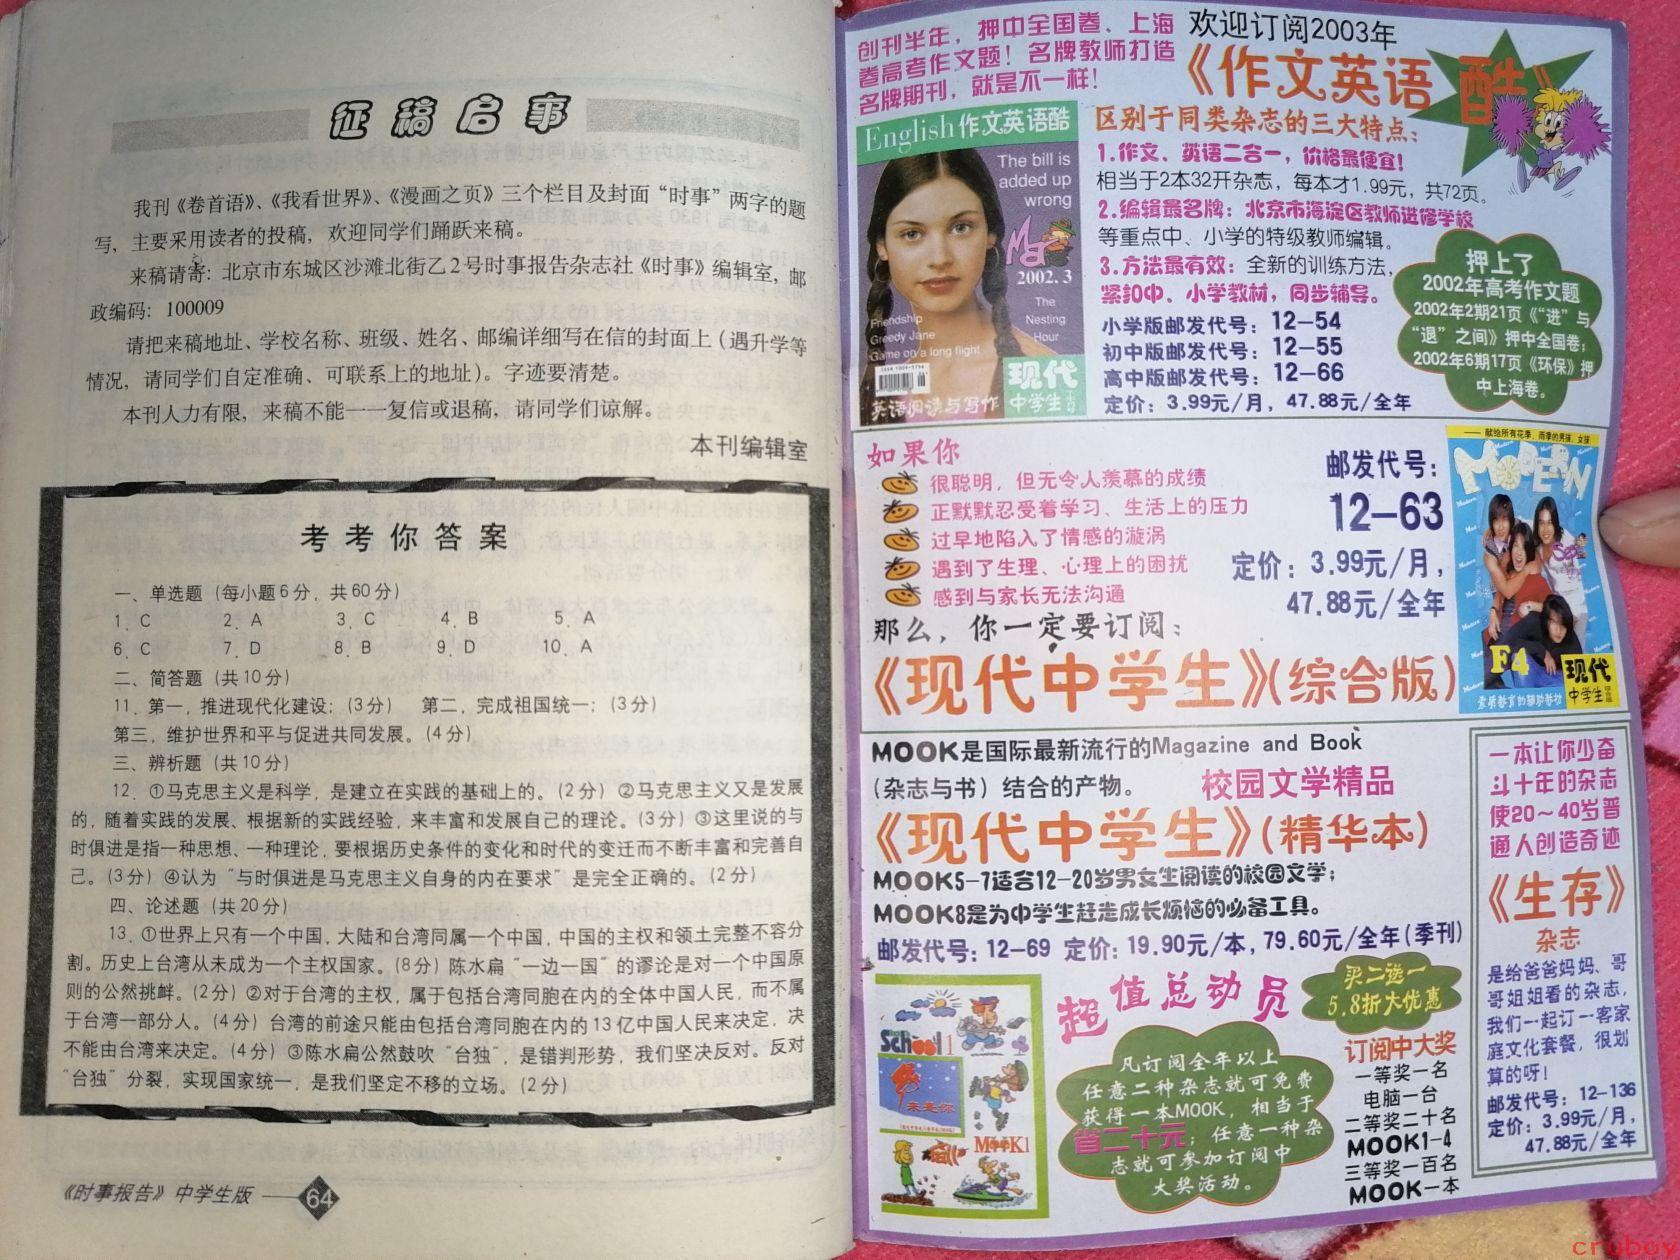 征稿启事
我刊《卷首语》、《我看世界》、《漫画之页》三个栏目及封面“时事”两字的题
写，主要采用读者的投稿，欢迎同学们踊跃来稿。
来稿请寄：北京市东城区沙滩北街乙2号时事报告杂志社《时事》编辑室，邮
政编码：100009
请把来稿地址、学校名称、班级、姓名、邮编详细写在信的封面上（遇升学等
情况，请同学们自定准确、可联系上的地址）。字迹要清楚。
本刊人力有限，来稿不能一一复信或退稿，请同学们谅解。
本刊编辑室
考考你答案
一、单选题（每小题6分，共60分）
1. C 2. A 3. C 4. B 5. A
6. C 7. D 8. B 9. D 10. A
二、简答题（共10分）
11. 第一，推进现代化建设；（3分） 第二，完成祖国统一；（3分）
第三，维护世界和平与促进共同发展。（4分）
三、辨析题（共10分）
12. ①马克思主义是科学，是建立在实践的基础上的。（2分）②马克思主义又是发展
的，随着实践的发展、根据新的实践经验，来丰富和发展自己的理论。（3分）③这里说的与
时俱进是指一种思想、一种理论，要根据历史条件的变化和时代的变迁而不断丰富和完善自
己。（3分）④认为“与时俱进是马克思主义自身的内在要求”是完全正确的。（2分）
四、论述题（共20分）
13. ①世界上只有一个中国，大陆和台湾同属一个中国，中国的主权和领土完整不容分
割。历史上台湾从未成为一个主权国家。（8分）陈水扁“一边一国”的谬论是对一个中国原
则的公然挑衅。（2分）②对于台湾的主权，属于包括台湾同胞在内的全体中国人民，而不属
于台湾一部分人。（4分）台湾的前途只能由包括台湾同胞在内的13亿中国人民来决定，决
不能由台湾来决定。（4分）③陈水扁公然鼓吹“台独”，是错判形势，我们坚决反对。反对
“台独”分裂，实现国家统一，是我们坚定不移的立场。（2分）
《时事报告》中学生版 64
创刊半年，押中全国卷、上海
卷高考作文题！名牌教师打造
名牌期刊，就是不一样！
欢迎订阅2003年
《作文英语酷》
English作文英语酷
The bill is
added up
wrong
2002.3
The
Nesting
Hour
Friendship
Greedy Jane
Game on a long flight
现代
中学生
英语阅读与写作
区别于同类杂志的三大特点：
1.作文、英语二合一，价格最便宜！
相当于2本32开杂志，每本才1.99元，共72页。
2.编辑最名牌：北京市海淀区教师进修学校
等重点中、小学的特级教师编辑。
3.方法最有效：全新的训练方法，
紧扣中、小学教材，同步辅导。
小学版邮发代号：12-54
初中版邮发代号：12-55
高中版邮发代号：12-66
定价：3.99元/月，47.88元/全年
押上了
2002年高考作文题
2002年2期21页《“进”与
“退”之间》押中全国卷；
2002年6期17页《环保》押
中上海卷。
如果你
很聪明，但无令人羡慕的成绩
正默默忍受着学习、生活上的压力
过早地陷入了情感的漩涡
遇到了生理、心理上的困扰
感到与家长无法沟通
那么，你一定要订阅：
《现代中学生》(综合版)
邮发代号：
12-63
定价：3.99元/月，
47.88元/全年
——献给所有花季、雨季的男孩、女孩
MODERN
F4
现代
中学生
素质教育的辅助教材
MOOK是国际最新流行的Magazine and Book
（杂志与书）结合的产物。 校园文学精品
《现代中学生》(精华本)
MOOK5-7适合12-20岁男女生阅读的校园文学；
MOOK8是为中学生赶走成长烦恼的必备工具。
邮发代号：12-69 定价：19.90元/本，79.60元/全年(季刊)
School 1
未是你
MOOK1
超值总动员
凡订阅全年以上
任意二种杂志就可免费
获得一本MOOK，相当于
省二十元；任意一种杂
志就可参加订阅中
大奖活动。
买二送一
5.8折大优惠
订阅中大奖
一等奖一名
电脑一台
二等奖二十名
MOOK1-4
三等奖一百名
MOOK一本
一本让你少奋
斗十年的杂志
使20～40岁普
通人创造奇迹
《生存》
杂志
是给爸爸妈妈、哥
哥姐姐看的杂志，
我们一起订一客家
庭文化套餐，很划
算的呀！
邮发代号：12-136
定价：3.99元/月，
47.88元/全年
cruber